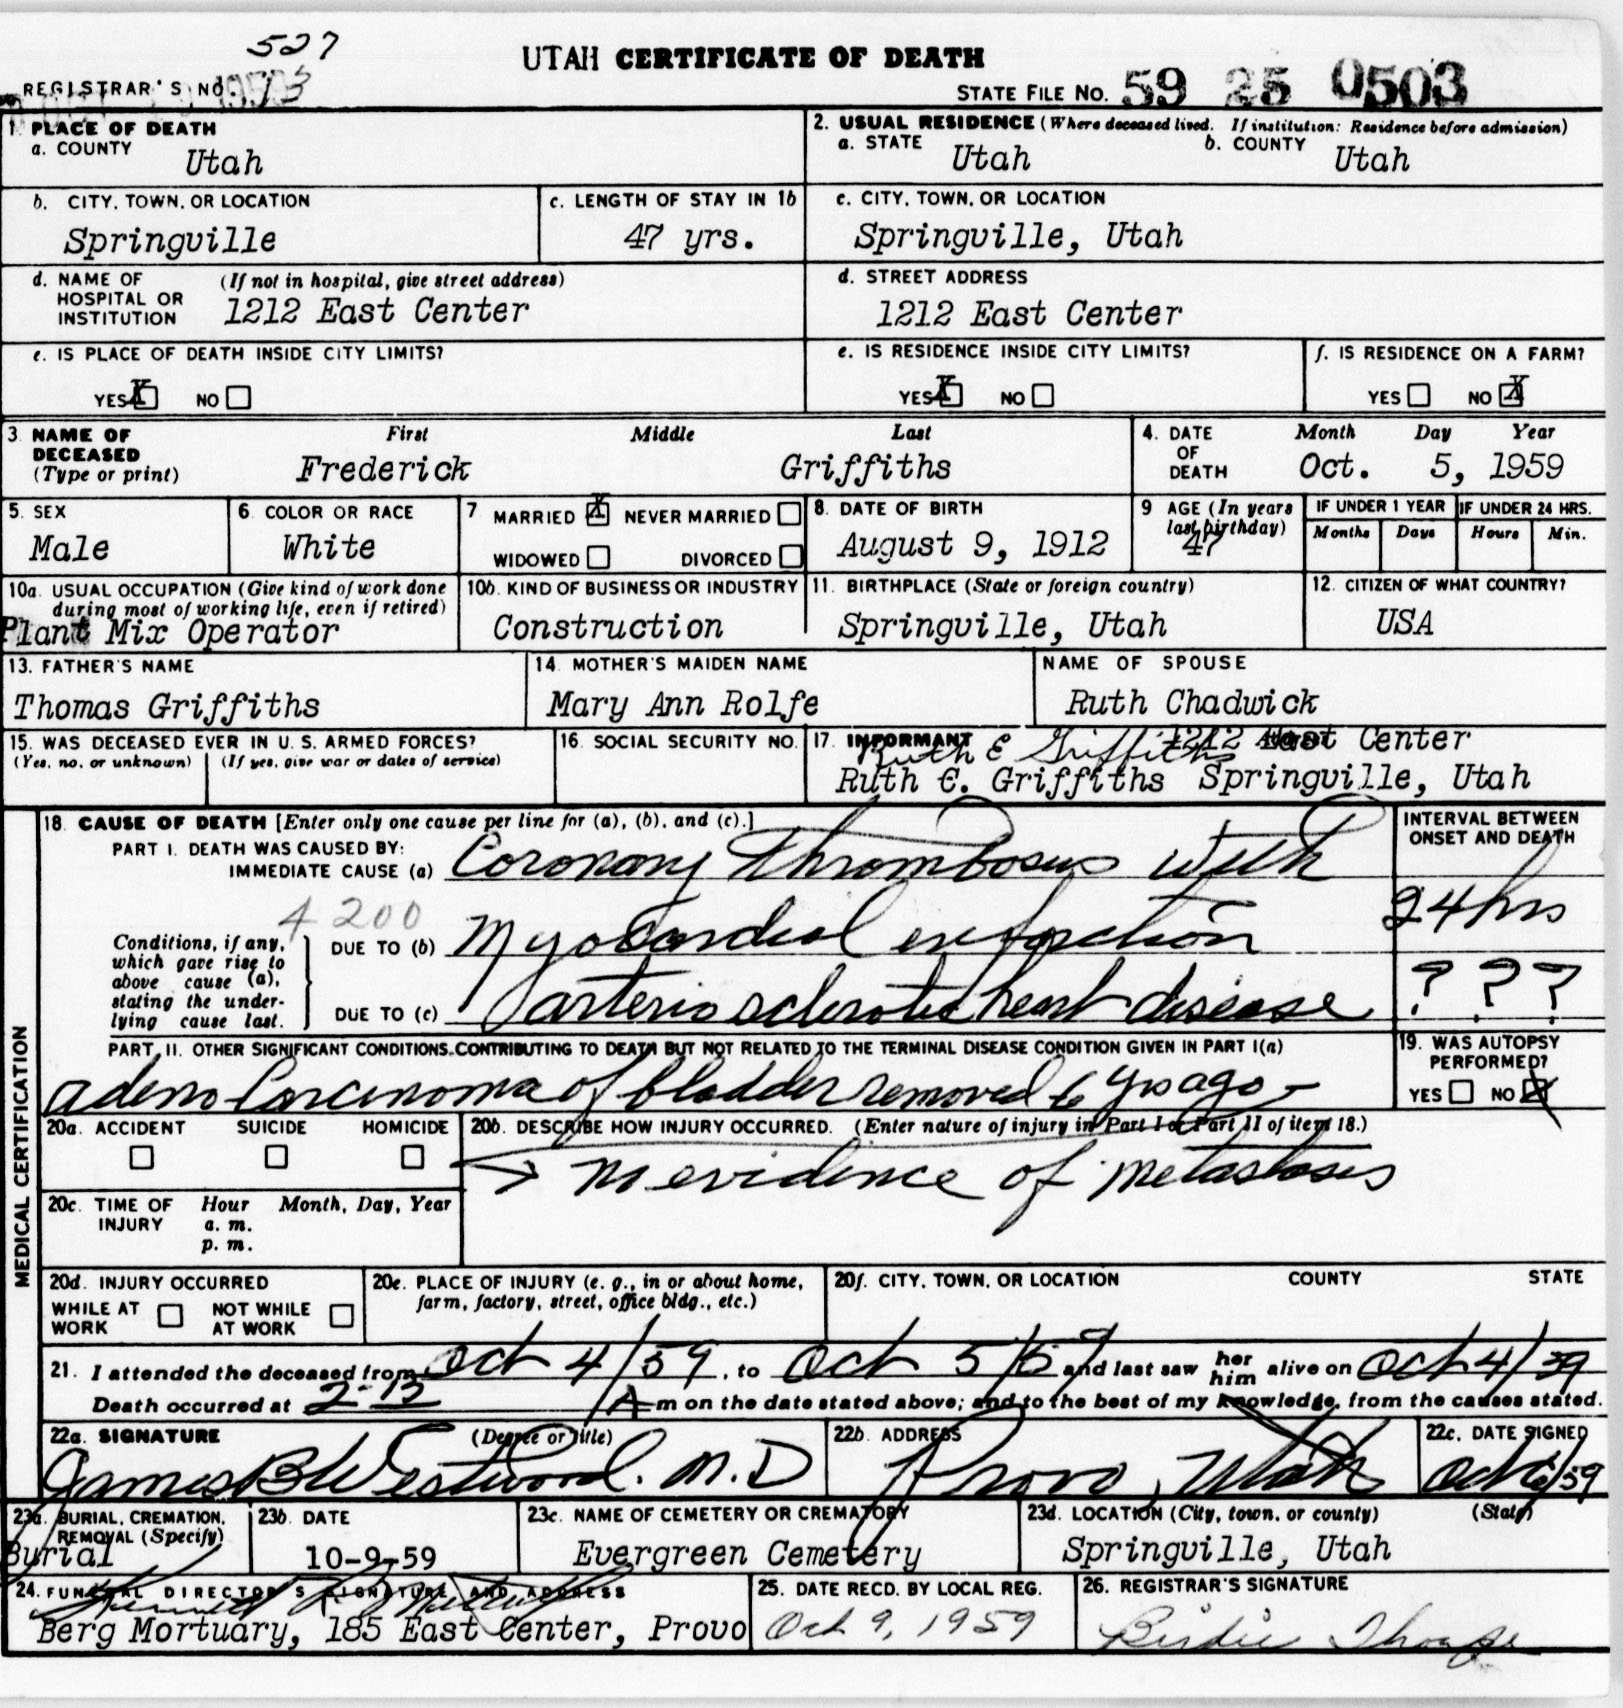 527
UTAH CERTIFICATE OF DEATH
REGISTRAR'S NO.
STATE FILE NO. 59 25 0503
1. PLACE OF DEATH
a. COUNTY Utah
2. USUAL RESIDENCE (Where deceased lived. If institution: Residence before admission)
a. STATE Utah b. COUNTY Utah
b. CITY, TOWN, OR LOCATION Springville
c. LENGTH OF STAY IN 1b 47 yrs.
c. CITY, TOWN, OR LOCATION Springville, Utah
d. NAME OF HOSPITAL OR INSTITUTION (If not in hospital, give street address) 1212 East Center
d. STREET ADDRESS 1212 East Center
e. IS PLACE OF DEATH INSIDE CITY LIMITS?
YES X NO
e. IS RESIDENCE INSIDE CITY LIMITS?
YES X NO
f. IS RESIDENCE ON A FARM?
YES NO X
3. NAME OF DECEASED (Type or print) First Middle Last
Frederick Griffiths
4. DATE OF DEATH Month Day Year
Oct. 5, 1959
5. SEX Male
6. COLOR OR RACE White
7 MARRIED X NEVER MARRIED
WIDOWED DIVORCED
8. DATE OF BIRTH August 9, 1912
9 AGE (In years last birthday) 47
IF UNDER 1 YEAR IF UNDER 24 HRS.
Months Days Hours Min.
10a. USUAL OCCUPATION (Give kind of work done during most of working life, even if retired)
Plant Mix Operator
10b. KIND OF BUSINESS OR INDUSTRY
Construction
11. BIRTHPLACE (State or foreign country)
Springville, Utah
12. CITIZEN OF WHAT COUNTRY?
USA
13. FATHER'S NAME
Thomas Griffiths
14. MOTHER'S MAIDEN NAME
Mary Ann Rolfe
NAME OF SPOUSE
Ruth Chadwick
15. WAS DECEASED EVER IN U. S. ARMED FORCES?
(Yes, no, or unknown) (If yes, give war or dates of service)
16. SOCIAL SECURITY NO.
17. INFORMANT Ruth E Griffiths 1212 East Center
Ruth E. Griffiths Springville, Utah
MEDICAL CERTIFICATION
18. CAUSE OF DEATH [Enter only one cause per line for (a), (b), and (c).]
INTERVAL BETWEEN ONSET AND DEATH
PART I. DEATH WAS CAUSED BY:
IMMEDIATE CAUSE (a) Coronary Thrombosus with
4200
24 hrs
Conditions, if any, which gave rise to above cause (a), stating the underlying cause last.
DUE TO (b) Myocardial infarction
DUE TO (c) arterio sclerotic heart disease
? ? ?
PART II. OTHER SIGNIFICANT CONDITIONS CONTRIBUTING TO DEATH BUT NOT RELATED TO THE TERMINAL DISEASE CONDITION GIVEN IN PART I(a)
adeno Carcinoma of bladder removed 6 yrs ago -
19. WAS AUTOPSY PERFORMED?
YES NO X
20a. ACCIDENT SUICIDE HOMICIDE
20b. DESCRIBE HOW INJURY OCCURRED. (Enter nature of injury in Part I or Part II of item 18.)
→ no evidence of metastases
20c. TIME OF INJURY Hour Month, Day, Year
a. m.
p. m.
20d. INJURY OCCURRED
WHILE AT WORK NOT WHILE AT WORK
20e. PLACE OF INJURY (e. g., in or about home, farm, factory, street, office bldg., etc.)
20f. CITY, TOWN, OR LOCATION COUNTY STATE
21. I attended the deceased from Oct 4/59, to Oct 5/59 and last saw her him alive on Oct 4/59
Death occurred at A m on the date stated above; and to the best of my knowledge, from the causes stated.
22a. SIGNATURE (Degree or title)
James B Westwood. M.D
22b. ADDRESS
Provo, Utah
22c. DATE SIGNED
Oct 6/59
23a. BURIAL, CREMATION, REMOVAL (Specify)
Burial
23b. DATE
10-9-59
23c. NAME OF CEMETERY OR CREMATORY
Evergreen Cemetery
23d. LOCATION (City, town, or county) (State)
Springville, Utah
24. FUNERAL DIRECTOR'S SIGNATURE AND ADDRESS
Berg Mortuary, 185 East Center, Provo
25. DATE RECD. BY LOCAL REG.
Oct 9, 1959
26. REGISTRAR'S SIGNATURE
Birdie